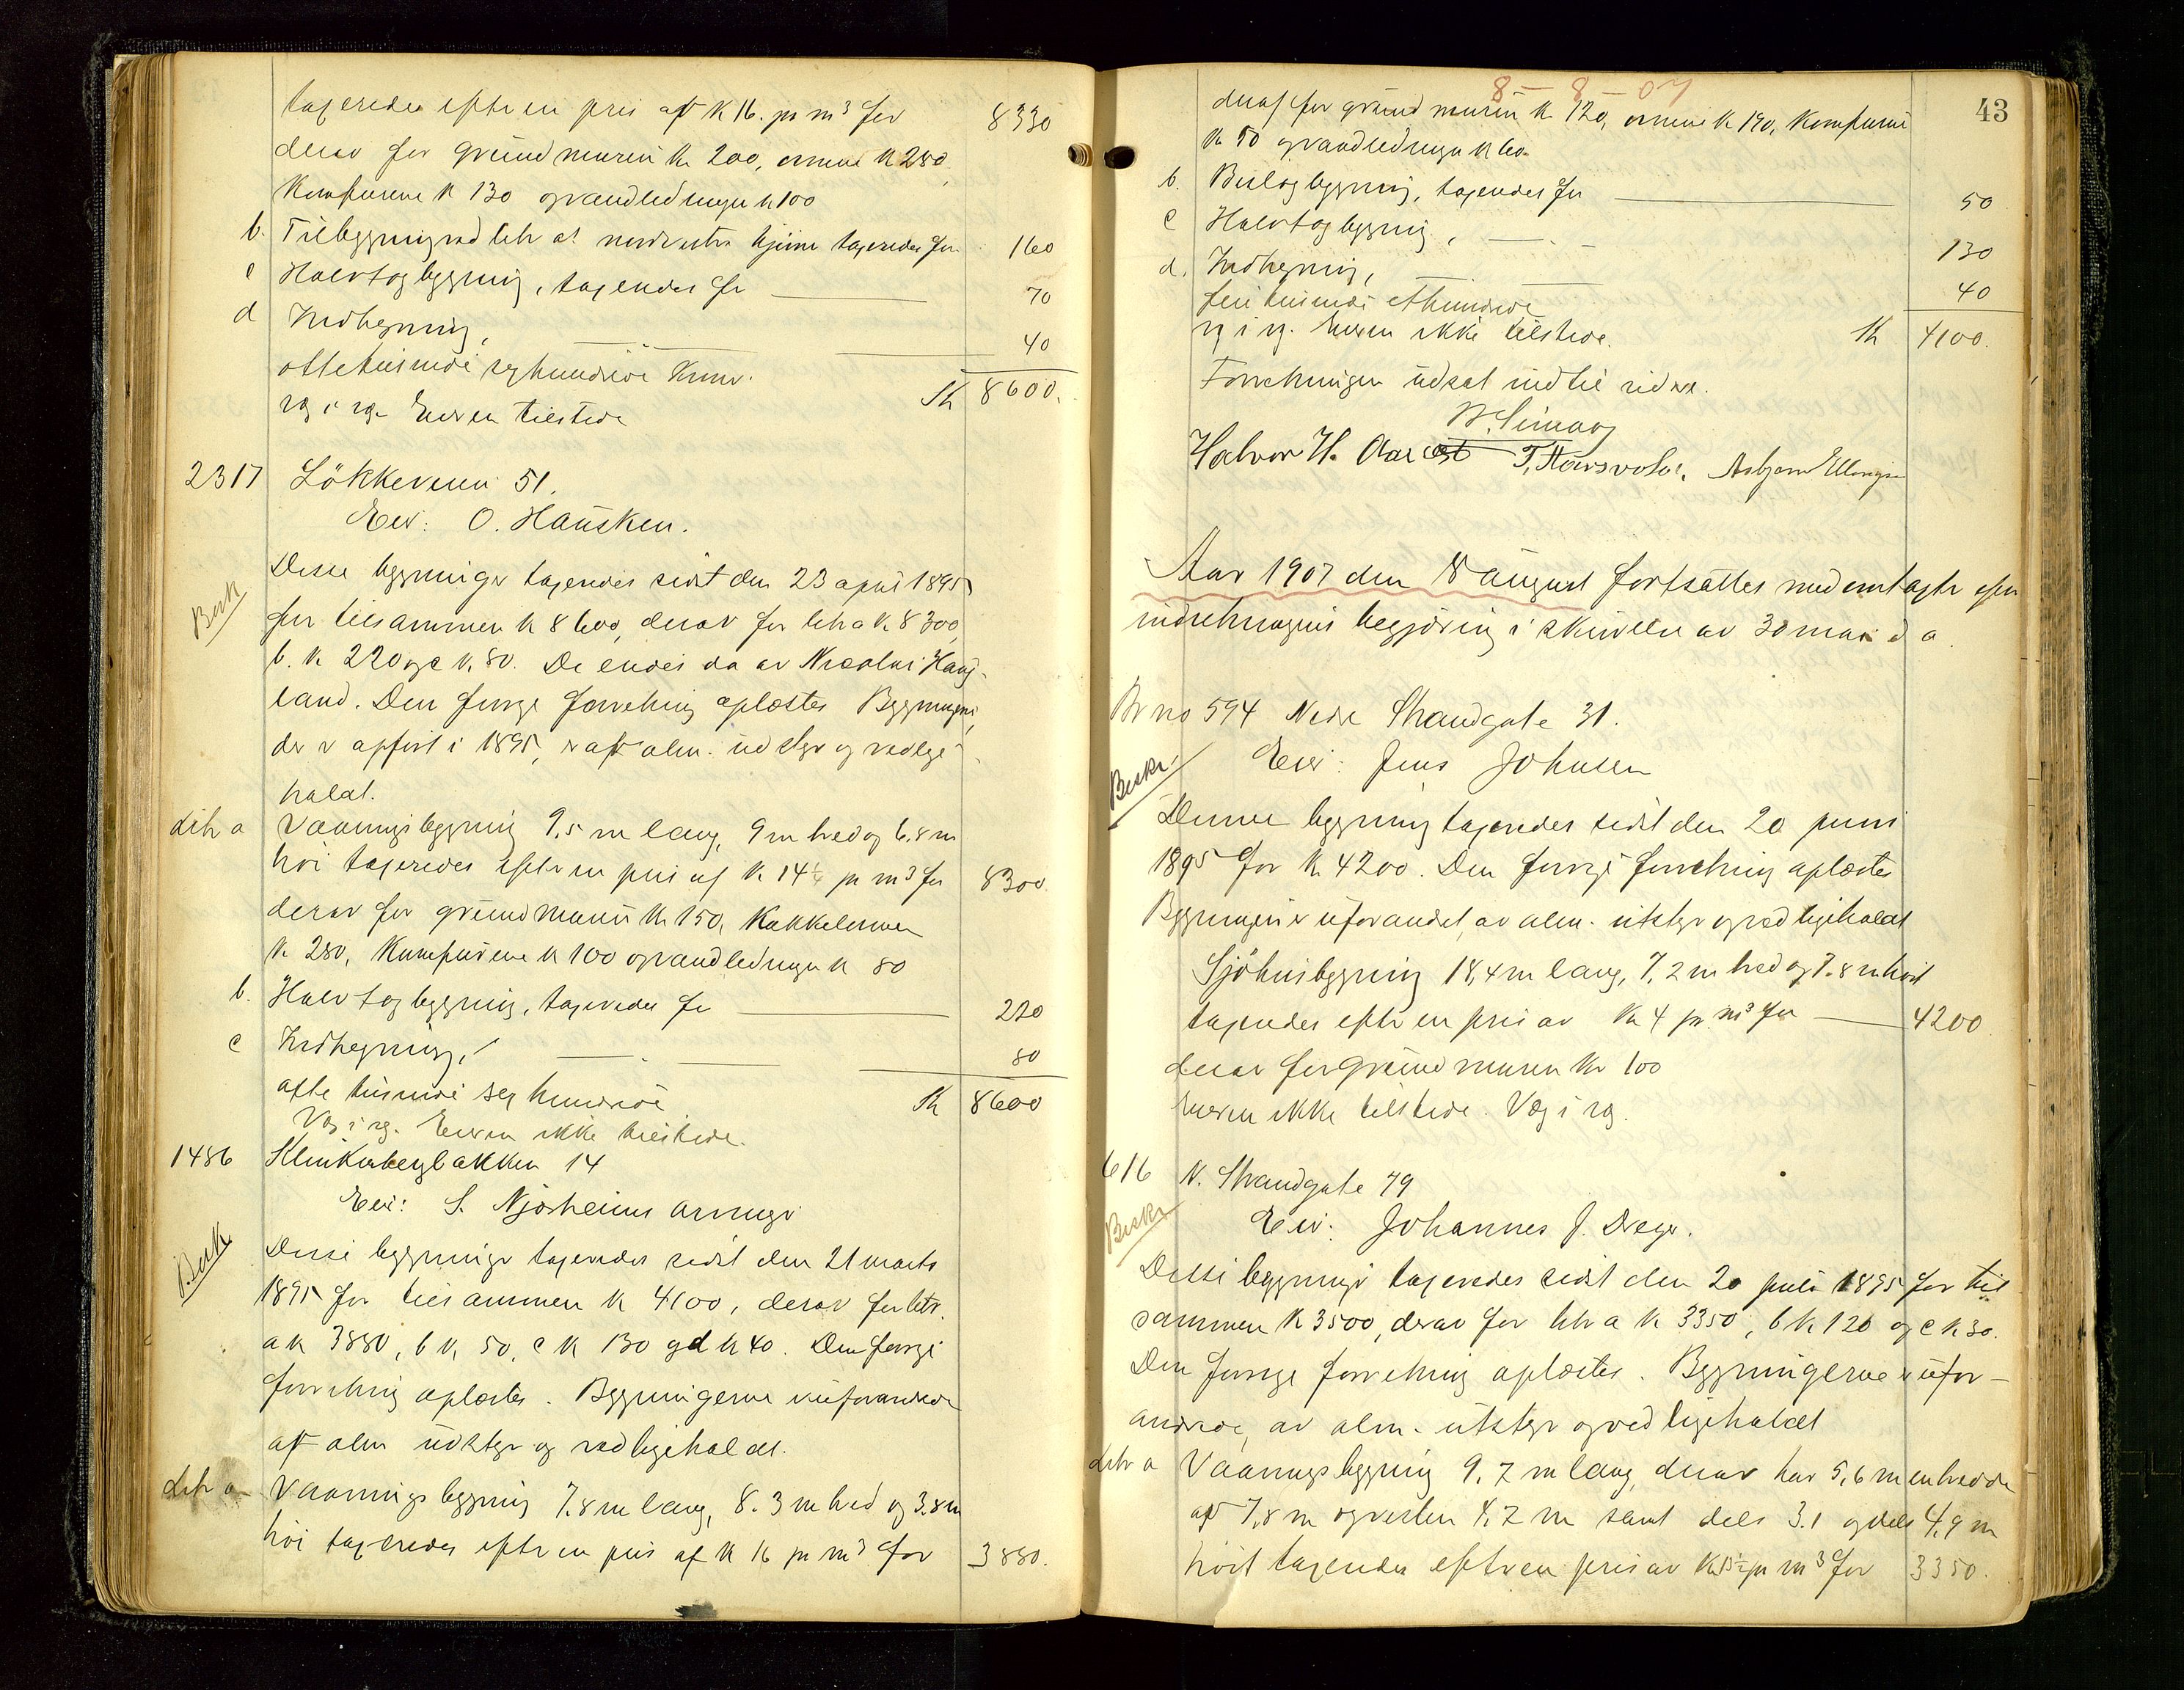 taxeredes efter en pris af K 16. pr m³ for 8330
derav for grundmuren Kr 200, ovnene K 280,
Komfurene K 130 og vandledningen K 100
b. Tilbygning ved litr a's hjørne taxeredes for 160
c Halvtagbygning, taxeredes for 70
d Indhegning, — " — 40
ottetusinde sexhundrede Kroner. Kr 8600.
Eieren tilstede
2317 Lökkeveien 51.
Eier: O. Hausken.
Besk
Disse bygninger taxeredes sidst den 23 april 1895
for tilsammen K 8600, derav for litr a K 8300,
b. K 220 og c K 80. De eiedes da av Nicolai Haug-
land. Den forrige forretning oplæstes Bygningerne,
der er opført i 1895, er af alm. udstyr og vedlige-
holdt.
Litr a Vaaningsbygning 9,5 m lang, 9 m bred og 6,8 m
höi taxeredes efter en pris af K 14¼ pr m³ for 8300.
derav for grundmuren Kr 150, Kakkelovnen
K 280, Komfurene K 100 og vandledningen K 80
b. Halvtagbygning, taxeredes for 220
c Indhegning, — " — 80
otte tusinde sex hundrede Kr 8600
Eieren ikke tilstede.
1486 Klinkenbergbakken 14
Eier: S. Njosheims arvinger
Besk
Disse bygninger taxeredes sidst den 21 marts
1895 for tilsammen K 4100, derav for litr.
a K 3880, b K 50, c K 130 og d K 40. Den forrige
forretning oplæstes. Bygningerne er uforandrede
af alm udstyr og vedligeholdt.
Litr a Vaaningsbygning 7.8 m lang, 8.3 m bred og 3.8 m
höi taxeredes efter en pris af K 16 pr m³ for 3880.
8-8-07
43
deraf for grundmuren Kr 120, ovnene K 190, Komfurene
K 50 og vandledningen K 60.
b. Bislagbygning, taxeredes for 50
c Halvtagbygning, — " — 130
d. Indhegning, — 40
fire tusinde ethundrede
Eieren ikke tilstede. Kr 4100.
Forretningen udsat indtil videre.
Halvor H. Aarrest T. Haarsvolr. Asbjørn Ellingsen
Aar 1907 den 8 august fortsattes med omtakster efter
indretningens begjæring i skrivelse av 30 mai d a
Br no 594 Nedre Strandgate 31.
Eier: Jens Johnsen
Beskr.
Denne bygning taxeredes sidst den 20 juni
1895 for K 4200. Den forrige forretning oplæstes
Bygningen er uforandret, av alm. utstyr og vedligeholdt
Sjöhusbygning 18,4 m lang, 7,2 m bred og 7.8 m höit
taxeredes efter en pris av Kr 4 pr m³ for 4200
derav for grundmuren Kr 100
Eieren ikke tilstede.
616 N. Strandgate 79
Beskr
Eier: Johannes J. Dreyer.
Disse bygninger taxeredes sidst den 20 juli 1895 for til
sammen K 3500, derav for litr a K 3350, b K 120 og c K 30.
Den forrige forretning oplæstes. Bygningerne er ufor-
andrede, av alm. utstyr og vedligeholdt
Litr a Vaaningsbygning 9,7 m lang, derav har 5,6 m en bredde
af 7,8 m og resten 4,7 m samt dels 3.1 og dels 4,9 m
höit taxeredes efter en pris av K 13½ pr m³ for 3350.